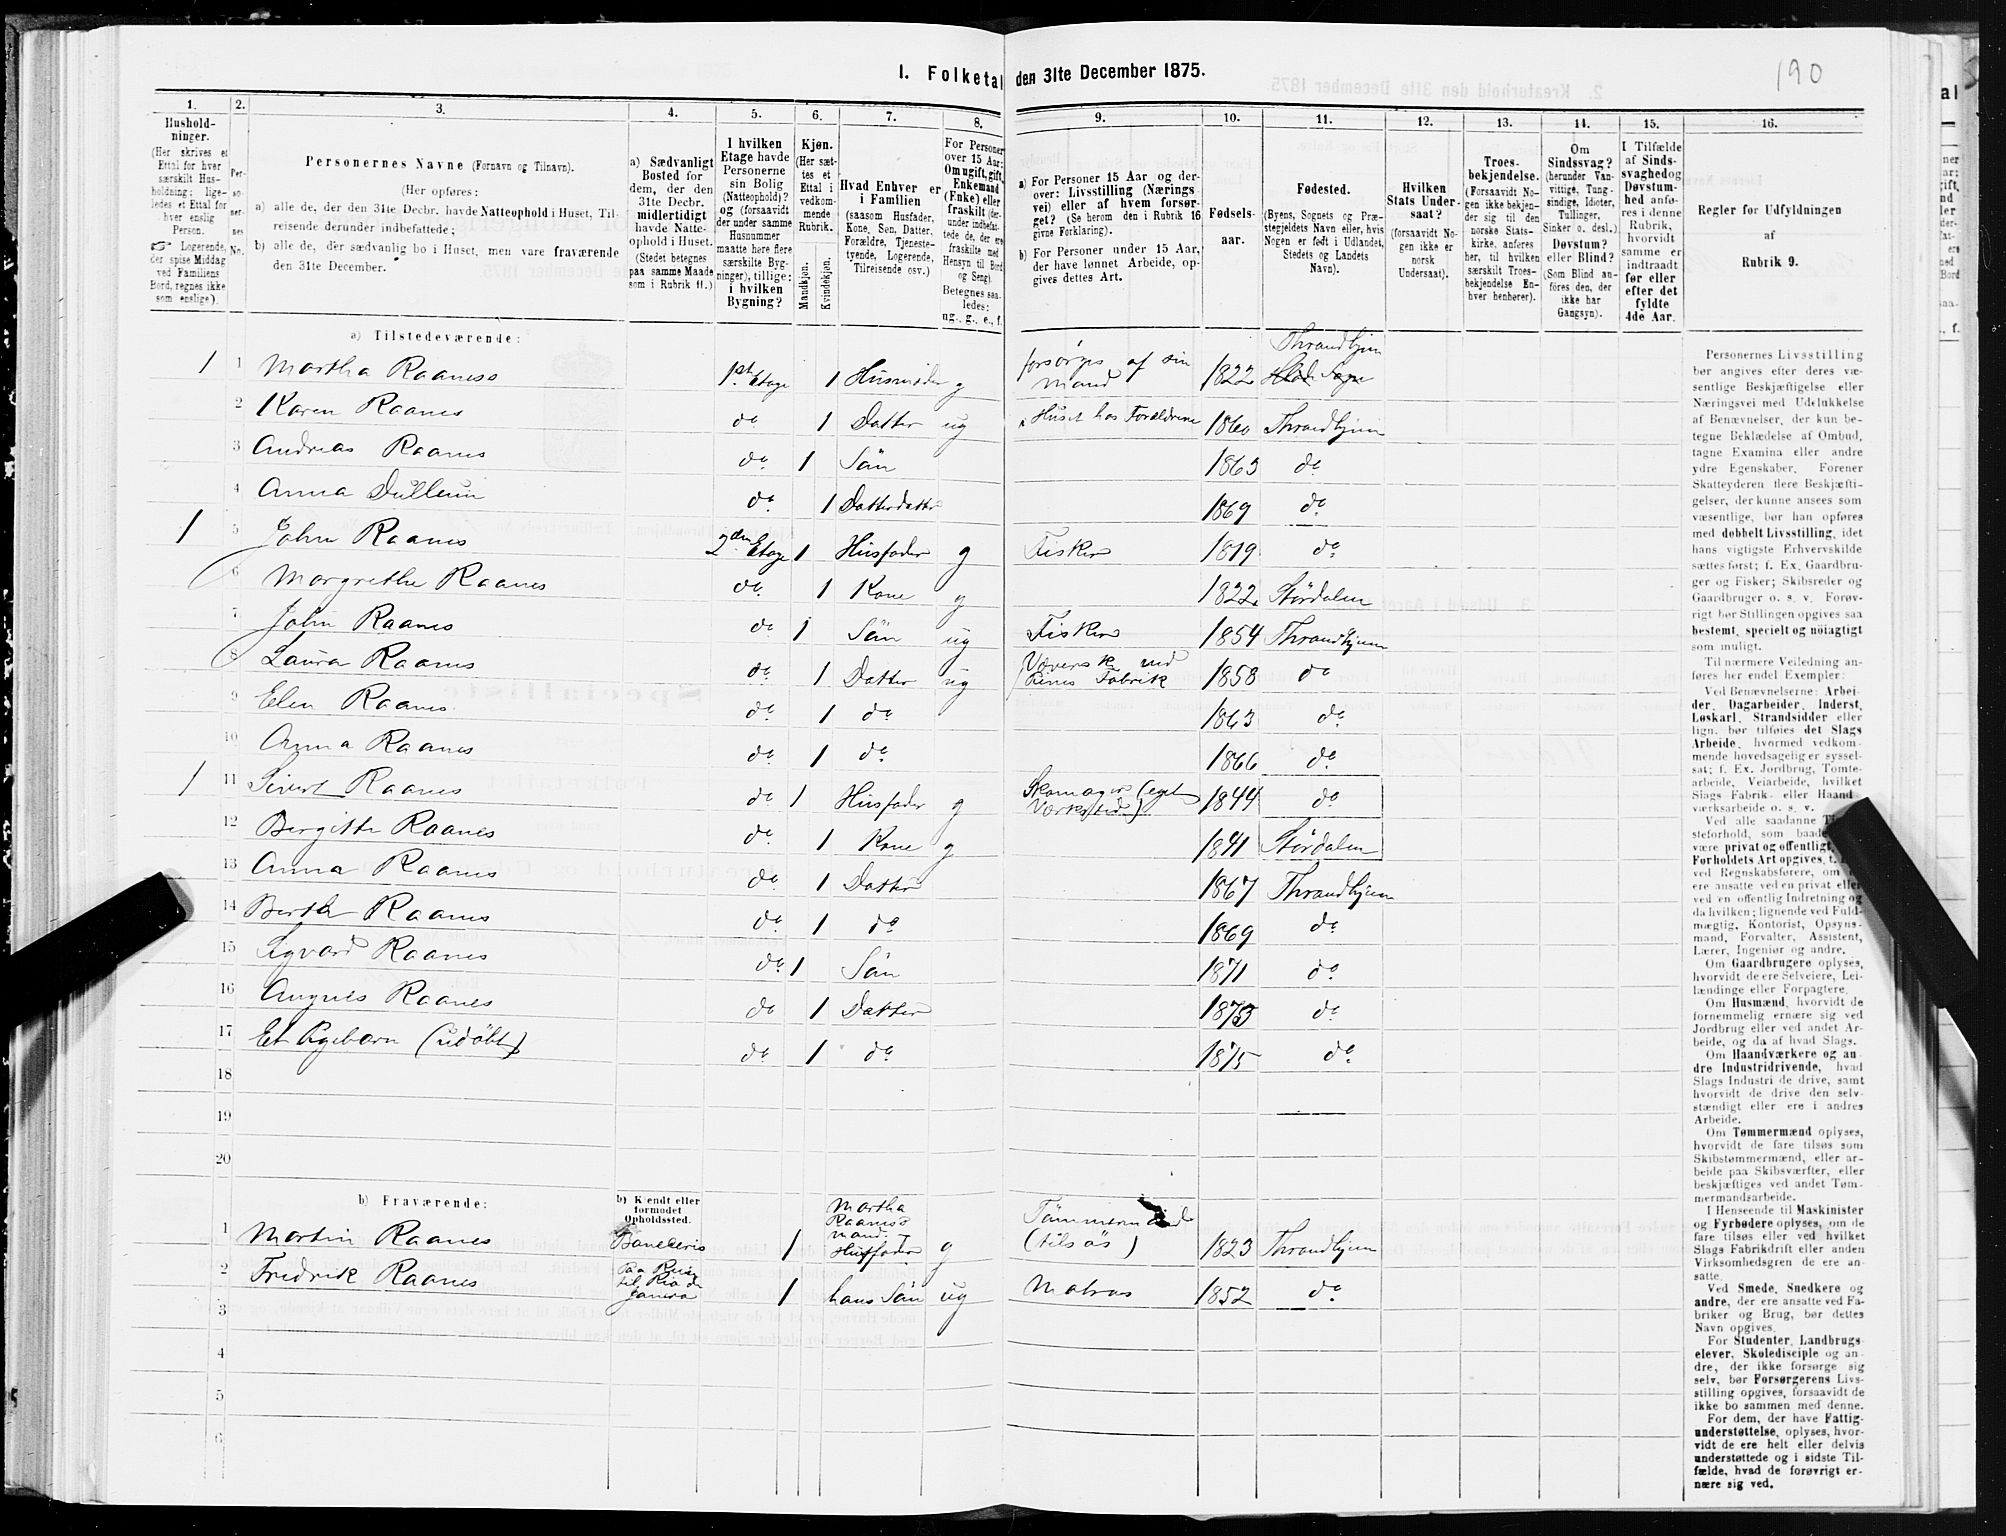 190
I. Folketal den 31te December 1875.
1. 2. 3. 4. 5. 6. 7. 8. 9. 10. 11. 12. 13. 14. 15. 16.
Husholdninger.
(Her skrives et
Ettal for hver
særskilt Husholdning;
ligeledes et Ettal for
hver enslig
Person.
☞ Logerende,
der spise Middag
ved Familiens
Bord, regnes ikke
som enslige).
Personernes No.
Personernes Navne (Fornavn og Tilnavn).
(Her opføres:
a) alle de, der den 31te Decbr. havde Natteophold i Huset, Tilreisende derunder indbefattede;
b) alle de, der sædvanlig bo i Huset, men vare fraværende
den 31te December.
a) Sædvanligt
Bosted for
dem, der den
31te Decbr.
midlertidigt
havde Natteophold i Huset.
(Stedet betegnes
paa samme Maade
som i Rubrik 11.)
I hvilken
Etage havde
Personerne
sin Bolig
(Natteophold)?
og (forsaavidt
der under samme
Husnummer
maatte høre flere
særskilte Bygninger), tillige:
i hvilken
Bygning?
Kjøn.
(Her sættes et
Ettal i
vedkommende
Rubrik.
Mandkjøn.
Kvindekjøn.
Hvad Enhver er
i Familien
(saasom Husfader,
Kone, Søn, Datter,
Forældre, Tjenestetyende, Logerende,
Tilreisende osv.)
For Personer
over 15 Aar:
Om ugift, gift,
Enkemand
(Enke) eller
fraskilt (derunder indbefattede de, der ere
fraskilte med
Hensyn til Bord
og Seng).
Betegnes saaledes:
ug., g., e., f.
a) For Personer 15 Aar og derover: Livsstilling (Næringsvei) eller af hvem forsørget? (Se herom den i Rubrik 16
givne Forklaring).
b) For Personer under 15 Aar,
der have lønnet Arbeide, opgives dettes Art.
Fødselsaar.
Fødested.
(Byens, Sognets og Præstegjeldets Navn eller, hvis
Nogen er født i Udlandet,
Stedets og Landets
Navn).
Hvilken
Stats Undersaat?
(forsaavidt Nogen ikke er
norsk
Undersaat).
Troesbekjendelse.
(Forsaavidt Nogen ikke bekjender sig til den
norske Statskirke, anføres
her, til hvilken
særskilt Troesbekjendelse Enhver henhører).
Om
Sindssvag?
(herunder Vanvittige, Tungsindige, Idioter,
Tullinger,
Sinker o. desl.)
Døvstum?
eller Blind?
(Som Blind anføres den, der
ikke har
Gangsyn).
I Tilfælde
af Sindssvaghed og
Døvstumhed anføres i denne
Rubrik,
hvorvidt
samme er
indtraadt
før eller
efter det
fyldte
4de Aar.
Regler før Udfyldningen
af
Rubrik 9.
a) Tilstedeværende:
1 1 Martha Raanes 1ste Etage 1 Husmoder g forsørges af sin Mand 1822 Throndhjem
2 Karen Raanes do 1 Datter ug i Huset hos Forældrene 1860 Throndhjem
3 Andreas Raanes do 1 Sön 1863 do
4 Anna Dullum do 1 Datterdatter 1869 do
1 5 John Raanes 2den Etage 1 Husfader g Fisker 1819 do
6 Margrethe Raanes do 1 Kone g 1822 Stördalen
7 John Raanes do 1 Sön ug Fisker 1854 Throndhjem
8 Laura Raanes do 1 Datter ug Væverske ved Fabrik 1858 do
9 Elen Raanes do 1 do 1863 do
10 Anna Raanes do 1 do 1866 do
1 11 Sivert Raanes do 1 Husfader g Skomager (eget Værksted) 1844 do
12 Bergitte Raanes do 1 Kone g 1841 Stördalen
13 Anna Raanes do 1 Datter 1867 Throndhjem
14 Berth Raanes do 1 do 1869 do
15 Sigvard Raanes do 1 Sön 1871 do
16 Angnes Raanes do 1 Datter 1873 do
17 Et Pigebarn (udöbt) do 1 do 1875 do
18
19
20
b) Fraværende: b) Kjendt eller
formodet
Opholdssted.
1 Martin Raanes 1 Martha Raanes Mand. Husfader g Tömmermand (tilsös) 1823 Throndhjem
2 Fredrik Raanes Paa Reise til Rio de Janeiro 1 hans Sön ug Matros 1852 do
3
4
5
6
Personernes Livsstilling
bør angives efter deres væsentlige Beskjæftigelse eller
Næringsvei med Udelukkelse
af Benævnelser, der kun betegne Beklædelse af Ombud,
tagne Examina eller andre
ydre Egenskaber. Forener
Skatteyderen flere Beskjæftigelser, der kunne ansees som
væsentlige, bør han opføres
med dobbelt Livsstilling, idet
hans vigtigste Erhvervskilde
sættes først; f. Ex. Gaardbruger og Fisker; Skibsreder og
Gaardbruger o. s. v. Forøvrigt bør Stillingen opgives saa
bestemt, specielt og nöiagtigt
som muligt.
Til nærmere Veiledning anføres her endel Exempler:
Ved Benævnelserne: Arbeider, Dagarbeider, Inderst,
Løskarl, Strandsidder eller
lign. bør tilføies det Slags
Arbeide, hvormed vedkommende hovedsagelig er sysselsat; f. Ex. Jordbrug, Tomtearbeide, Veiarbeide, hvilket
Slags Fabrik- eller Haandværksarbeide o. s. v.
Ved alle saadanne
være privat og offentligt,
Forholdets Art opgives,
ved Regnskabsførere, om
ere ansatte ved en privat eller
ved en offentlig Indretning og
da hvilken; lignende ved Fuldmægtig, Kontorist, Opsynsmand, Forvalter, Assistent,
Lærer, Ingeniør og andre.
Om Gaardbrugere oplyses,
hvorvidt de ere Selveiere, Leilændinge eller Forpagtere.
Om Husmænd, hvorvidt de
fornemmelig ernære sig ved
Jordbrug eller ved andet Arbeide, og da af hvad Slags.
Om Haandværkere og andre Industridrivende, hvad
Slags Industri de drive, samt
hvorvidt de drive den selvstændigt eller ere i andres
Arbeide.
Om Tømmermænd oplyses,
hvorvidt de fare tilsøs som
Skibstømmermænd, eller arbeide paa Skibsværfter, eller
beskjæftiges ved andet Tømmermandsarbeide.
I Henseende til Maskinister
og Fyrbødere oplyses, om de
fare tilsøs eller ved hvilket
Slags Fabrikdrift eller anden
Virksomhedsgren de ere ansatte.
Ved Smede, Snedkere og
andre, der ere ansatte ved Fabriker og Brug, bør dettes
Navn opgives.
For Studenter, Landbrugselever, Skoledisciple og andre, der ikke forsørge sig
selv, bør Forsørgerens Livsstilling opgives, forsaavidt de
ikke bo sammen med denne.
For dem, der have Fattigunderstøttelse, oplyses, hvorvidt de ere helt eller delvis
understøttede og i sidste Tilfælde, hvad de forøvrigt ernære sig ved.